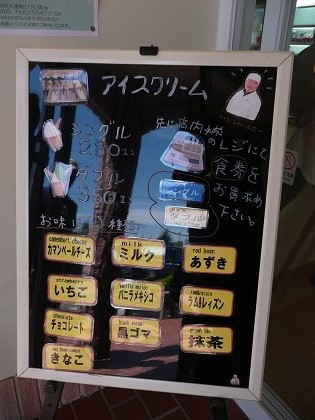 アイスクリーム
シングル
280エン
ダブル
350エン
先に店内
のレジにて
食券を
お買求め
下さい。
シングル
ダブル
お味
camembert cheese
カマンベールチーズ
milk
ミルク
red bean
あずき
strawberry
いちご
vanilla mexico
バニラメキシコ
ラム&レィズン
chocolate
チョコレート
black sesame
黒ゴマ
green tea
抹茶
きなこ